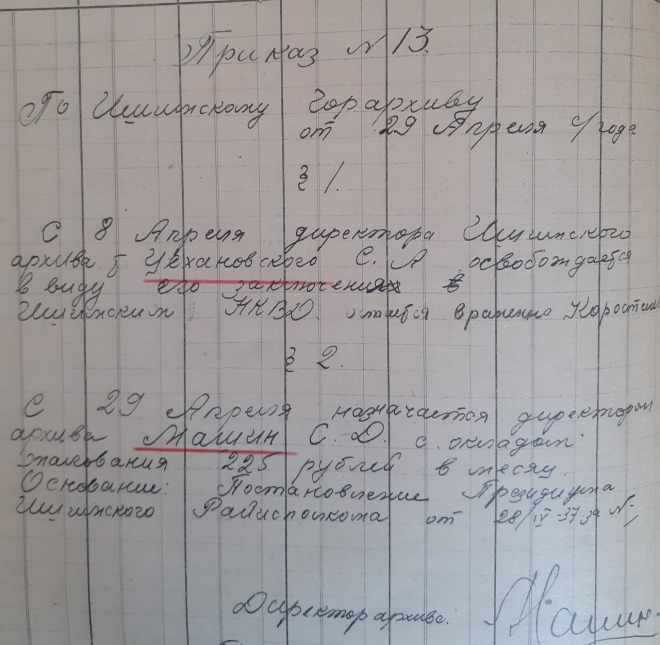 Приказ № 13.
По Ишимскому Горархиву
от 29 Апреля с/года
§ 1.
С 8 Апреля директора Ишимского
архива т Цехановского С. А освобождается
в виду его заключения в
Ишимским НКВД. остается временно
§ 2.
С 29 Апреля назначается директором
архива Машин С. Д. с окладом
225 рублей в месяц.
Основание: Постановление Президиума
Ишимского Райисполкома от 28/IV-37
Директор архива: Машин